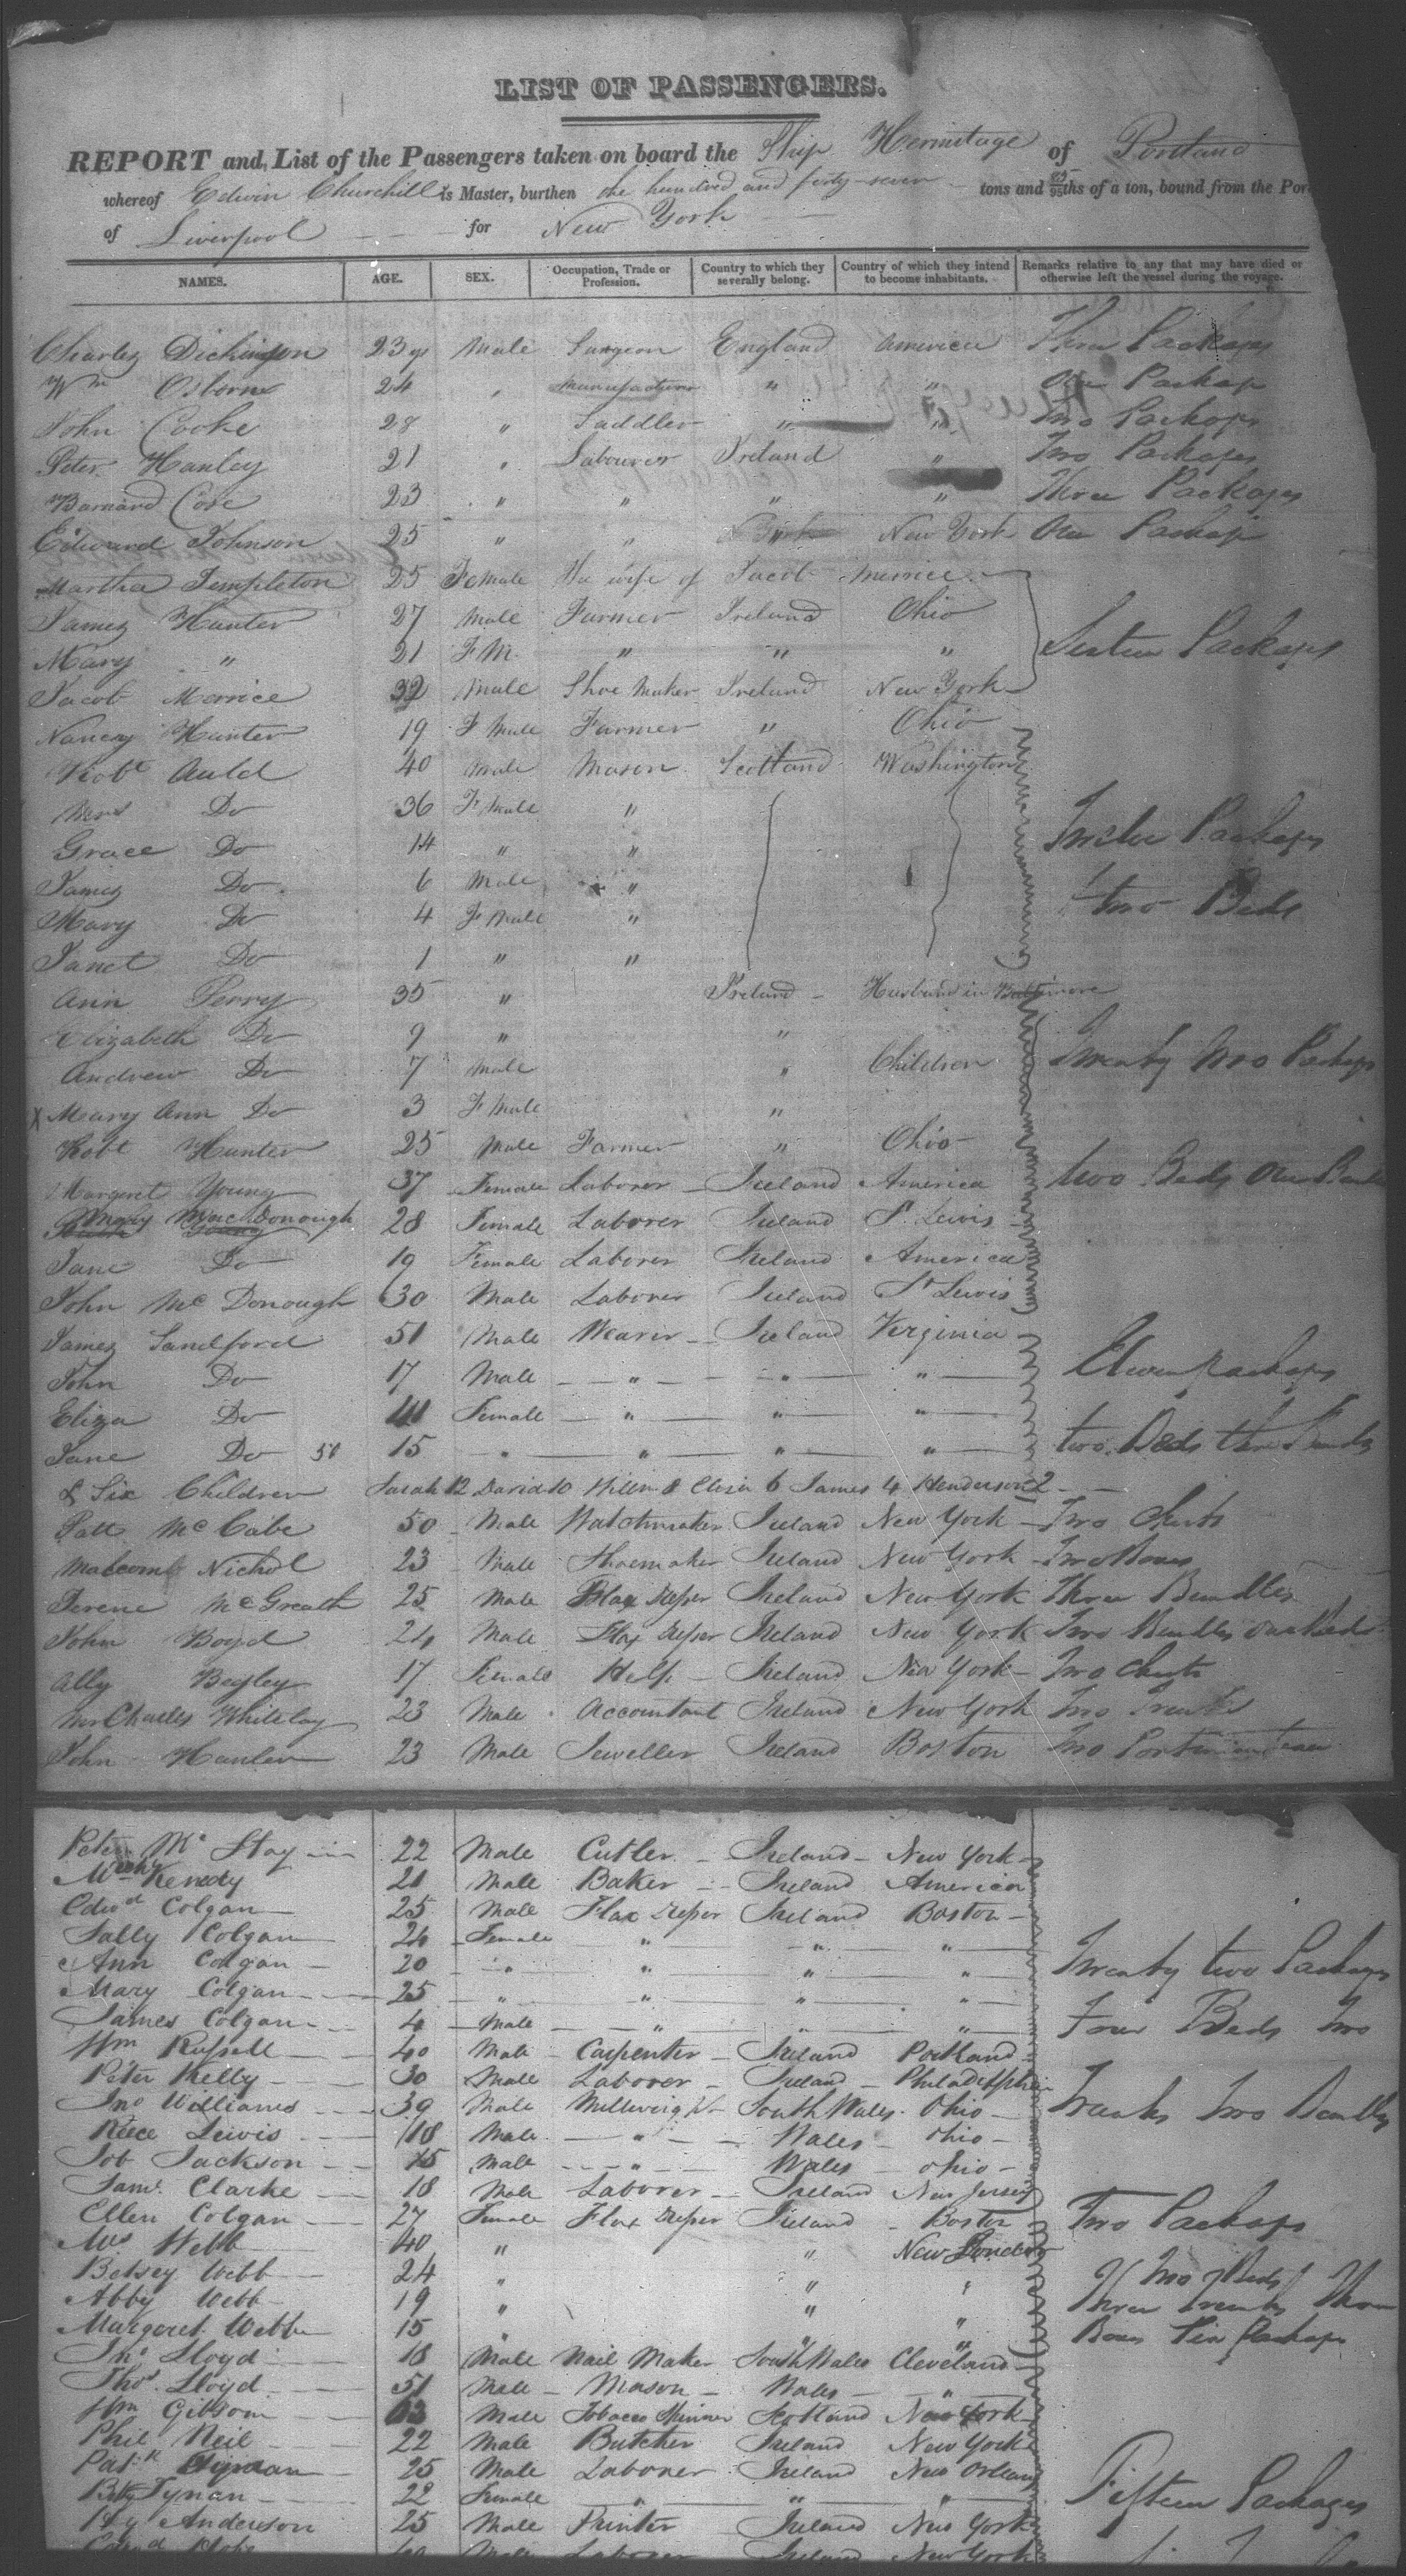 LIST OF PASSENGERS.
REPORT and List of the Passengers taken on board the Ship Hermitage of Portland
whereof Edwin Churchill is Master, burthen hundred and forty-seven tons and 85/95ths of a ton, bound from the Por
of Liverpool for New York
NAMES. AGE. SEX. Occupation, Trade or Profession. Country to which they severally belong. Country of which they intend to become inhabitants. Remarks relative to any that may have died or otherwise left the vessel during the voyage.
Charles Dickinson 23 ys Male Surgeon England America Three Packages
Wm Osborne 24 " " " One Package
John Cooke 28 " Saddler " " Two Packages
Peter Hanley 21 " Labourer Ireland " Two Packages
Barnard Cose 23 " " " " Three Packages
Edward Johnson 25 " " " New York One Package
Martha Templeton 25 FeMale The wife of Jacob Merrice
James Hunter 27 Male Farmer Ireland Ohio
Mary " 21 F M. " " " Packages
Jacob Merrice 32 Male Shoe Maker Ireland New York
Nancy Hunter 19 F Male Farmer " Ohio
Robt Auld 40 Male Mason Scotland Washington
Mrs Do 36 F Male "
Grace Do 14 " " Twelve Packages
James Do 6 Male "
Mary Do 4 F Male " two Beds
Janet Do 1 " "
Ann Perry 35 " Ireland Husband in Baltimore
Elizabeth Do 9 " "
Andrew Do 7 Male " Children Twenty two Packages
X Mary Ann Do 3 F Male "
Robt Hunter 25 Male Farmer " Ohio
Margaret Young 37 Female Laborer Ireland America two Beds One
Mary MacDonough 28 Female Laborer Ireland St Lewis
Jane Do 19 Female Laborer Ireland America
John Mc Donough 30 Male Laborer Ireland St Lewis
James Sandford 51 Male Weaver Ireland Virginia
John Do 17 Male " " " Eleven packages
Eliza Do Female " " "
Jane Do 50 15 " " " " two Beds
& Six Children Sarah 12 David 10 Willm 8 Eliza 6 James 4 Henderson 2
Patt Mc Cabe 50 Male Watchmaker Ireland New York Two Chests
Malcomb Nichol 23 Male Shoemaker Ireland New York Two Boxes
Terene McGreath 25 Male Flax Dresser Ireland New York Three Bundles
John Boyd 24 Male Flax Dresser Ireland New York Two Bundles
Ally Begley 17 Female Help Ireland New York Two Chests
Mr Charles Whitelay 23 Male Accountant Ireland New York Two Trunks
John Hanlen 23 Male Jeweller Ireland Boston Two Portmanteau
Peter Mc Stay 22 Male Cutler Ireland New York
Kenedy 21 Male Baker Ireland America
Edwd Colgan 25 Male Flax Dresser Ireland Boston
Sally Colgan 24 Female " " "
Ann Colgan 20 " " " " Twenty two Packages
Mary Colgan 25 " " " "
James Colgan 4 Male " " " Four Beds Two
Wm Russell 40 Male Carpenter Ireland Portland
Peter Kelly 30 Male Laborer Ireland Philadelphia
Jno Williams 39 Male Millwright South Wales Ohio Trunks Two Bundles
Reece Lewis 18 Male " Wales Ohio
Job Jackson 15 Male " Wales Ohio
Saml Clarke 18 Male Laborer Ireland New Jersey
Ellen Colgan 27 Female Flax Dresser Ireland Boston Two Packages
Mrs Webb 40 " " New London
Betsey Webb 24 " " " Two Beds
Abby Webb 19 " " Three Trunks Three
Margeret Webb 15 " " " Boxes Packages
Jno Lloyd 18 Male Nail Maker South Wales Cleveland
Thos Lloyd 51 Male Mason Wales "
Wm Gibson Male Tobacco Spinner Scotland New York
Phil Neil 22 Male Butcher Ireland New York
Patk 25 Male Laborer Ireland New Orleans
Tynan 22 Female " " " Fifteen Packages
Hy Anderson 25 Male Printer Ireland New York
Male Laborer Ireland New York